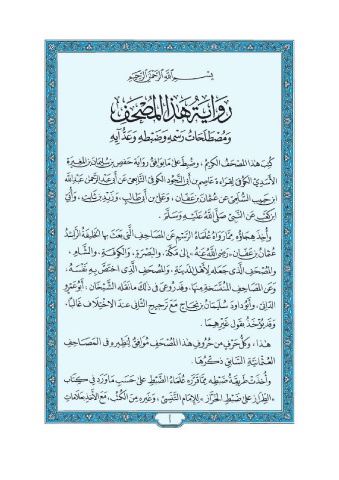 بسم الله الرحمن الرحيم
رواية هذا المصحف
ومصطلحات رسمه وضبطه وعدّ آيه
كُتِبَ هذا المصحف الكريم، وضُبِط على ما يوافق رواية حفص بن سليمان بن المغيرة
الأسدي الكوفي لقراءة عاصم بن أبي النجود الكوفي التابعي عن أبي عبد الرحمن عبد الله
ابن حبيب السلمي عن عثمان بن عفان، وعلي بن أبي طالب، وزيد بن ثابت، وأبي
ابن كعب عن النبي صلى الله عليه وسلم.
وأُخِذ هجاؤه ممّا رواه علماء الرسم عن المصاحف التي بعث بها الخليفة الراشد
عثمان بن عفان «رضي الله عنه» إلى مكة، والبصرة، والكوفة، والشام،
والمصحف الذي جعله لأهل المدينة، والمصحف الذي اختص به نفسه،
وعن المصاحف المنتسخة منها، وقد روعي في ذلك ما نقله الشيخان، أبو عمرو
الداني، وأبو داود سليمان بن نجاح مع ترجيح الثاني عند الاختلاف غالبًا،
وقد يؤخذ بقول غيرهما.
هذا، وكل حرف من حروف هذا المصحف موافق لنظيره في المصاحف
العثمانية السابق ذكرها.
وأُخِذت طريقة ضبطه ممّا قرّره علماء الضبط على حسب ما ورد في كتاب
«الطراز على ضبط الخراز» للإمام التنسي، وغيره من الكتب، مع الأخذ بعلامات
أ